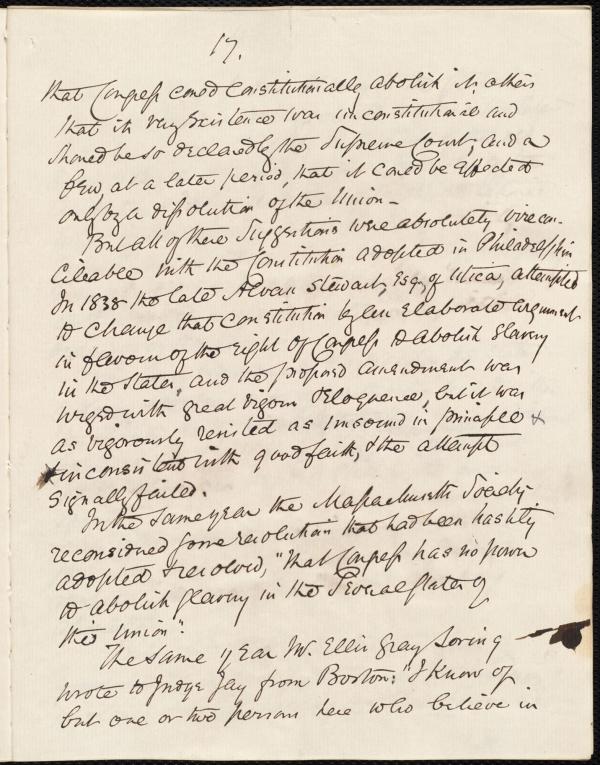 17.
that Congress could Constitutionally abolish it, others
that its very existence was unconstitutional and
should be so declared by the Supreme Court, and a
few, at a later period, that it could be effected
only by a dissolution of the Union—
But all of these suggestions were absolutely irrecon-
cileable with the Constitution adopted in Philadelphia
In 1838 the late Alvan Stewart, Esq, of Utica, attempted
to change that Constitution by an elaborate argument
in favour of the right of Congress to abolish slavery
in the States, and the proposed amendment was
urged with great vigour & eloquence, but it was
as vigorously resisted as unsound in principle &
inconsistent with good faith, & the attempt
signally failed.
In the same year the Massachusetts Society
reconsidered some resolution that had been hastily
adopted & resolved, "That Congress has no power
to abolish slavery in the Several States of
this Union".
The same year Mr. Ellis Gray Loring
wrote to Judge Jay from Boston: "I know of
but one or two persons here who believe in